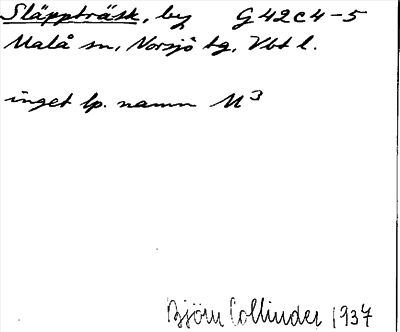 Släppträsk, by G42C4-5
Malå sn, Norsjö tg, Vbt l.
inget lp. namn M3
Björn Collinder 1937